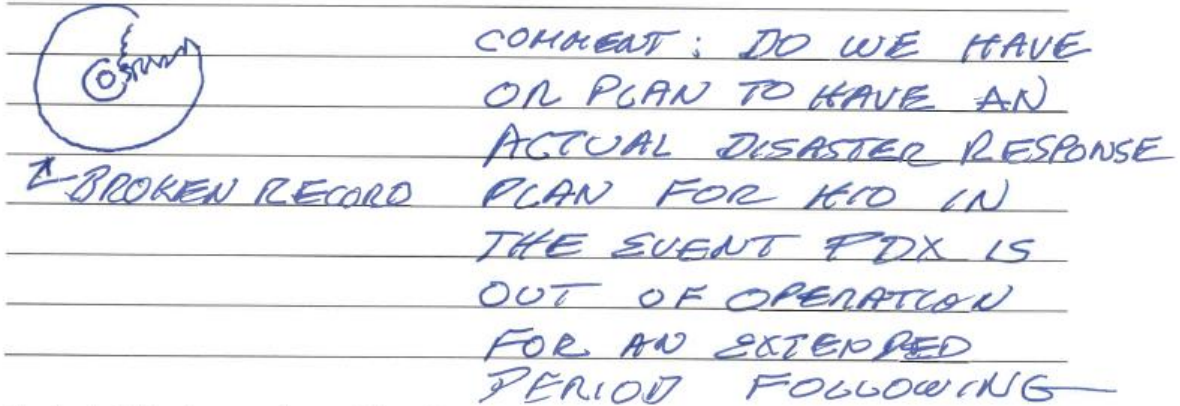 COMMENT: DO WE HAVE
OR PLAN TO HAVE AN
ACTUAL DISASTER RESPONSE
BROKEN RECORD PLAN FOR HIO IN
THE EVENT PDX IS
OUT OF OPERATION
FOR AN EXTENDED
PERIOD FOLLOWING